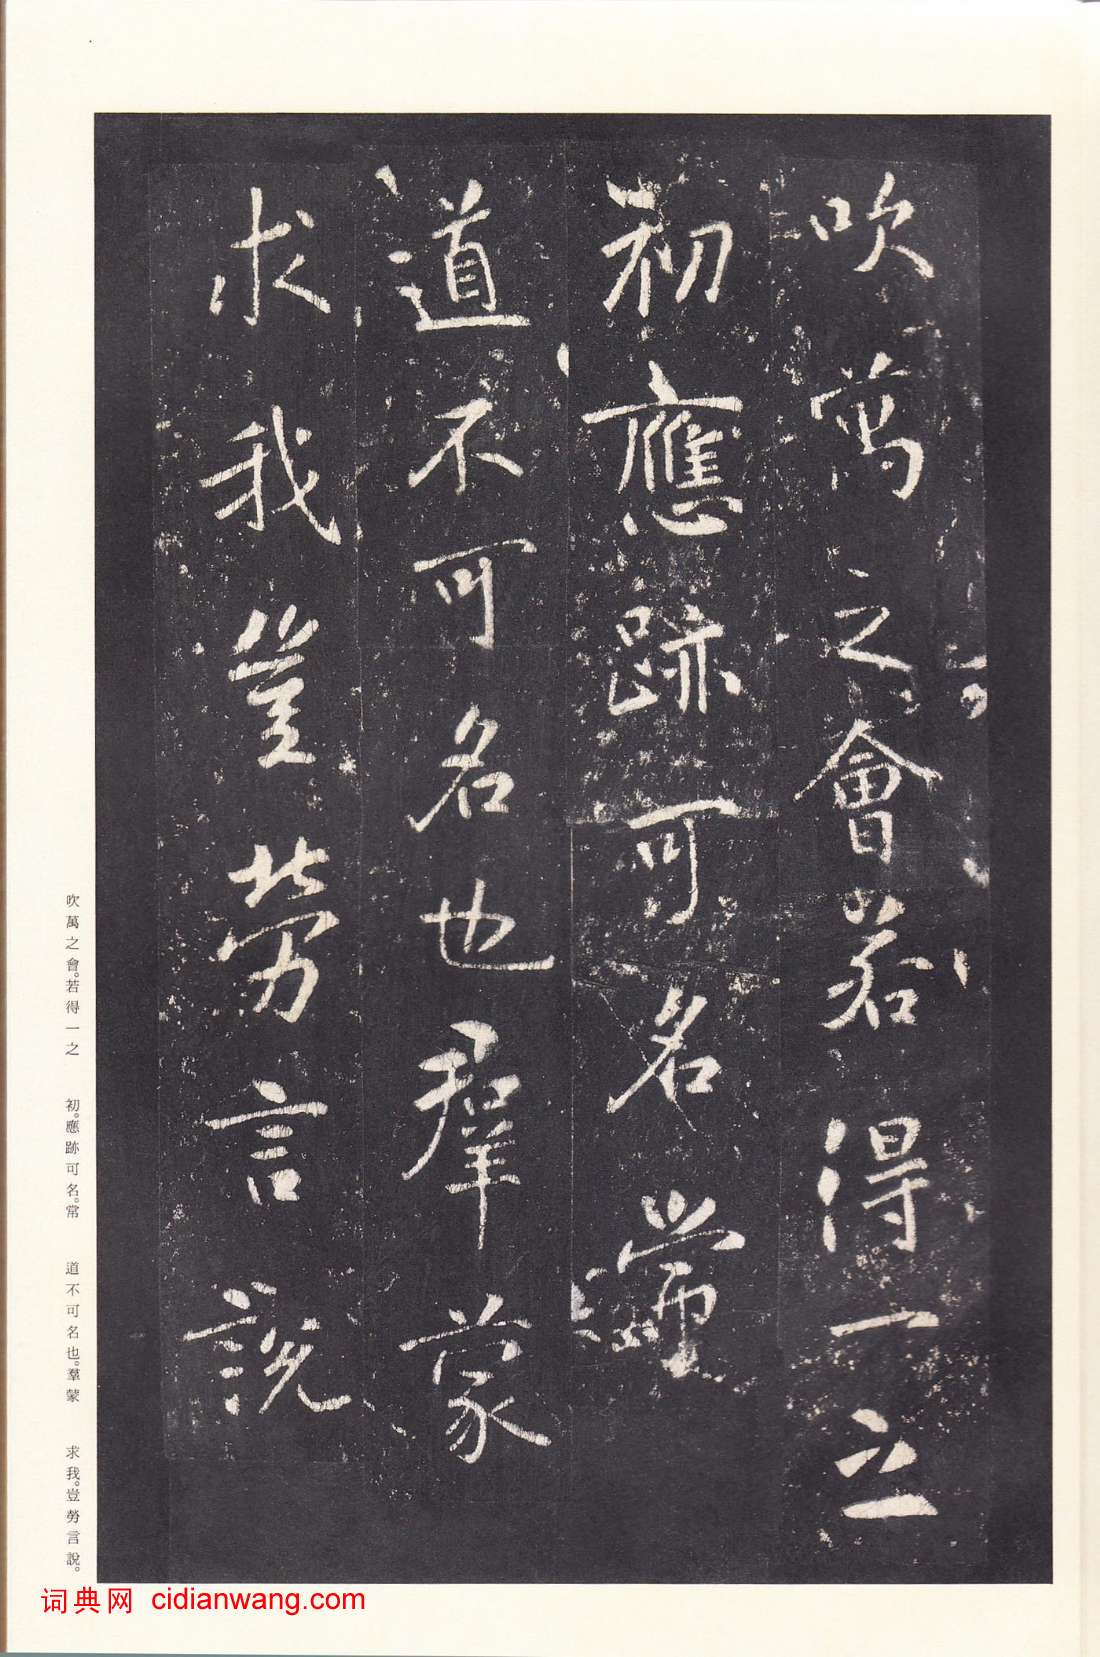 吹萬之會若得一之
初應跡可名常
道不可名也羣蒙
求我豈勞言說
吹萬之會。若得一之 初。應跡可名。常 道不可名也。羣蒙 求我。豈勞言說。
词典网 cidianwang.com